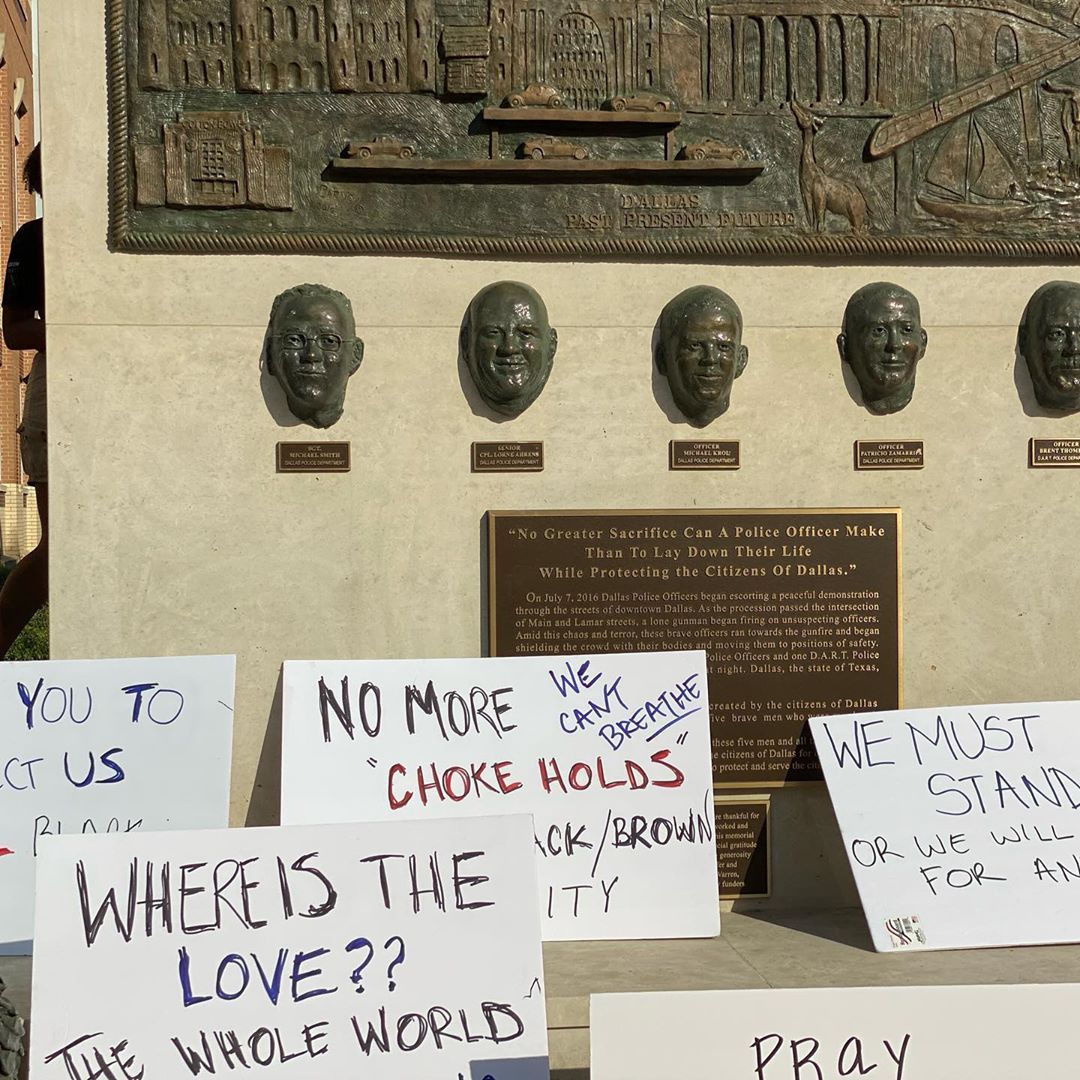 DALLAS
PAST PRESENT FUTURE
SGT.
MICHAEL SMITH
DALLAS POLICE DEPARTMENT
SENIOR
CPL. LORNE AHRENS
DALLAS POLICE DEPARTMENT
OFFICER
MICHAEL KROL
DALLAS POLICE DEPARTMENT
OFFICER
PATRICIO ZAMARRIPA
DALLAS POLICE DEPARTMENT
OFFICER
BRENT THOM
D.A.R.T. POLICE DEPAR
"No Greater Sacrifice Can A Police Officer Make
Than To Lay Down Their Life
While Protecting the Citizens Of Dallas."
On July 7, 2016 Dallas Police Officers began escorting a peaceful demonstration
through the streets of downtown Dallas. As the procession passed the intersection
of Main and Lamar streets, a lone gunman began firing on unsuspecting officers.
Amid this chaos and terror, these brave officers ran towards the gunfire and began
shielding the crowd with their bodies and moving them to positions of safety.
Police Officers and one D.A.R.T. Police
night. Dallas, the state of Texas,
created by the citizens of Dallas
five brave men who
these five men and all
citizens of Dallas for
protect and serve the
are thankful for
worked and
his memorial
cial gratitude
generosity
fer and
Warren,
funders
YOU TO
CT US
BLACK
NO MORE
WE
CAN'T
BREATHE
"CHOKE HOLDS"
ACK/BROWN
ITY
WE MUST
STAND
OR WE WILL
FOR AN
WHERE IS THE
LOVE??
THE WHOLE WORLD
PRAY